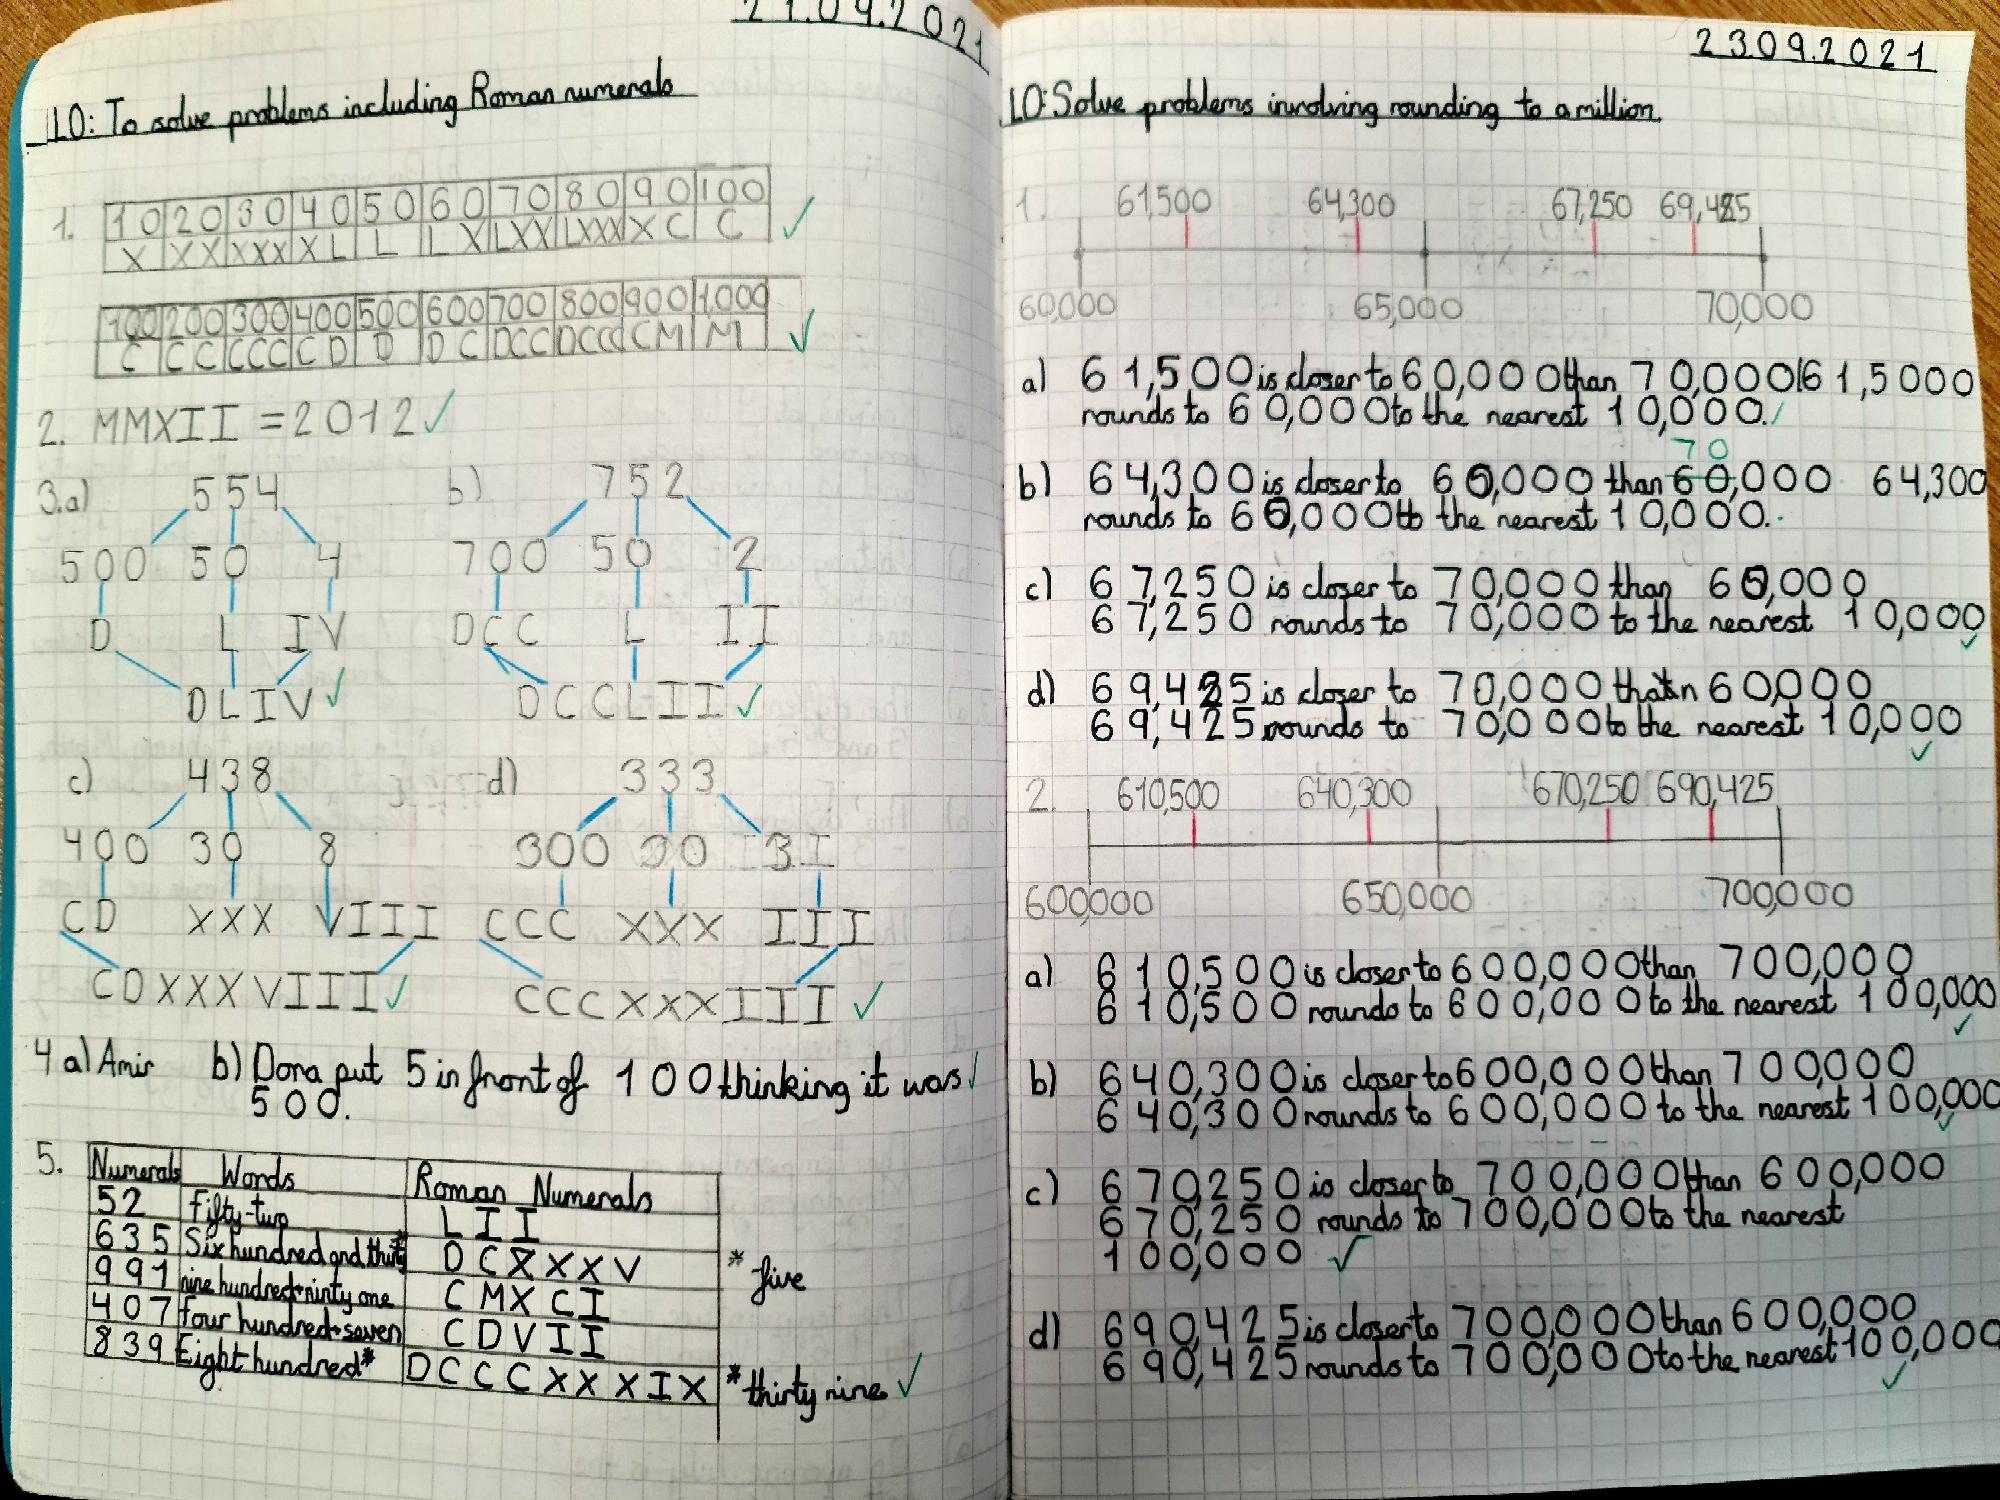 21.09.2021
LO: To solve problems including Roman numerals
1. 10 20 30 40 50 60 70 80 90 100
X XX XXX XL L LX LXX LXXX XC C ✓
100 200 300 400 500 600 700 800 900 1,000
C CC CCC CD D DC DCC DCCC CM M ✓
2. MMXII = 2012 ✓
3.a) 554 b) 752
500 50 4 700 50 2
D L IV DCC L II
DLIV ✓ DCCLII ✓
c) 438 d) 333
400 30 8 300 30 3
CD XXX VIII CCC XXX III
CDXXXVIII ✓ CCCXXXIII ✓
4 a) Amir b) Dora put 5 in front of 100 thinking it was ✓
500.
5. Numerals Words Roman Numerals
52 Fifty-two LII
635 Six hundred and thirty* DCXXXV * five
991 nine hundred+ninty one CMXCI
407 four hundred+seven CDVII
839 Eight hundred* DCCCXXXIX *thirty nine ✓
23.09.2021
LO: Solve problems involving rounding to a million.
1. 61,500 64,300 67,250 69,425
60,000 65,000 70,000
a) 61,500 is closer to 60,000 than 70,000 61,5000
rounds to 60,000 to the nearest 10,000. ✓
70
b) 64,300 is closer to 60,000 than 60,000 64,300
rounds to 60,000 to the nearest 10,000.
c) 67,250 is closer to 70,000 than 60,000
67,250 rounds to 70,000 to the nearest 10,000 ✓
d) 69,425 is closer to 70,000 than 60,000
69,425 rounds to 70,000 to the nearest 10,000 ✓
2. 610,500 640,300 670,250 690,425
600,000 650,000 700,000
a) 610,500 is closer to 600,000 than 700,000
610,500 rounds to 600,000 to the nearest 100,000 ✓
b) 640,300 is closer to 600,000 than 700,000
640,300 rounds to 600,000 to the nearest 100,000 ✓
c) 670,250 is closer to 700,000 than 600,000
670,250 rounds to 700,000 to the nearest
100,000 ✓
d) 690,425 is closer to 700,000 than 600,000
690,425 rounds to 700,000 to the nearest 100,000 ✓